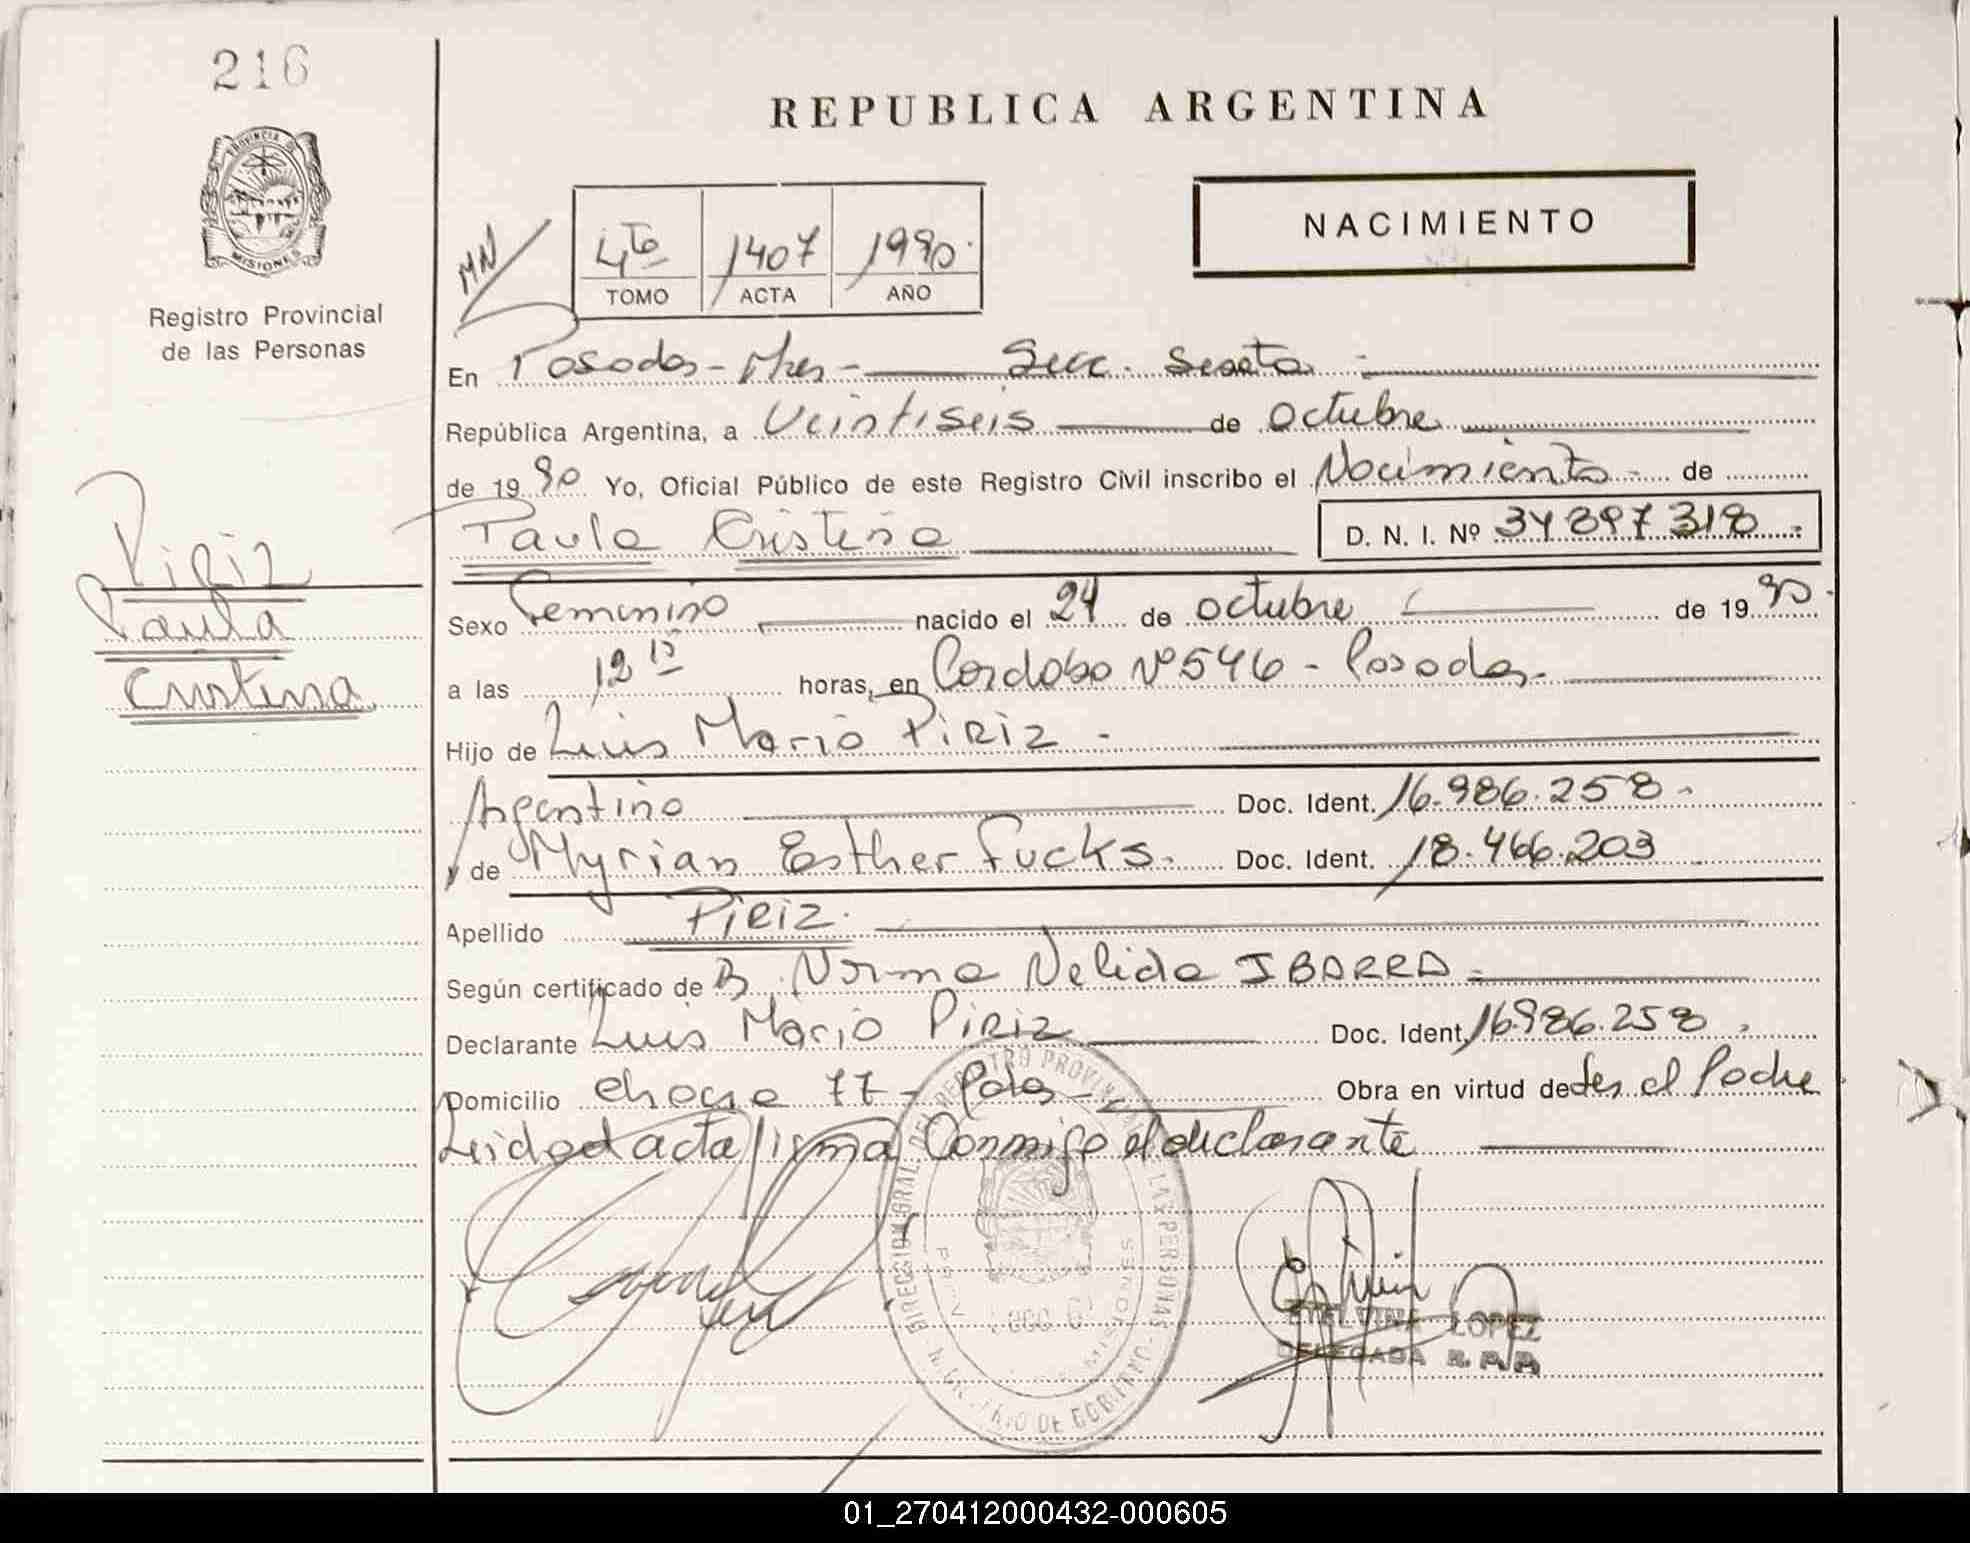 216
REPUBLICA ARGENTINA
PROVINCIA DE
MISIONES
Registro Provincial
de las Personas
MN
4to 1407 1990.
TOMO ACTA AÑO
NACIMIENTO
En Posadas - Mnes - Secc. Sexta
República Argentina, a Veintiseis de Octubre
de 1990 Yo, Oficial Público de este Registro Civil inscribo el Nacimiento de
Paula Cristina D. N. I. Nº 34 897 318
Piriz
Paula
Cristina
Sexo Femenino nacido el 24 de octubre de 1990.
a las 12 15 horas, en Cordoba Nº 546 - Posadas.
Hijo de Luis Mario Piriz -
Argentino Doc. Ident. 16.986.258.
y de Myrian Esther Fucks. Doc. Ident. 18.466.203
Apellido Piriz.
Según certificado de Norma Nelida IBARRA
Declarante Luis Mario Piriz Doc. Ident. 16.986.258
Domicilio 77 - Pdas Obra en virtud de ser el Padre
Leida el acta firma Conmigo el declarante
ETELVINA LOPEZ
DELEGADA R. P. P.
01_270412000432-000605